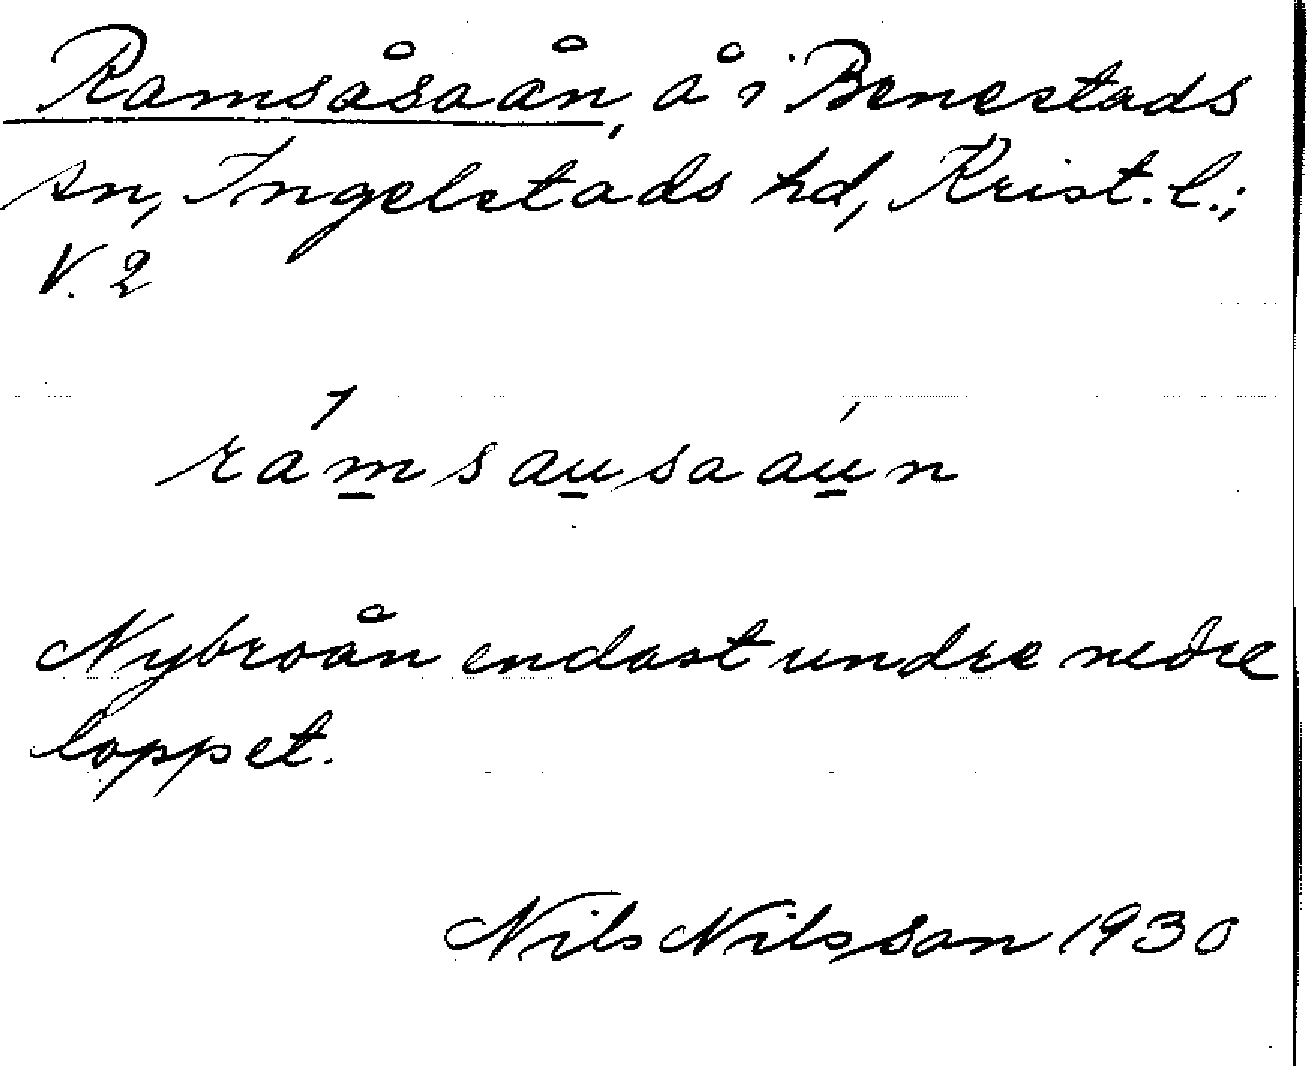 Ramsåsaån, å i Benestads
sn, Ingelstads hd, Krist. l.;
V. 2
rámsausaaún
Nybroån endast undre nedre
loppet.
Nils Nilsson 1930